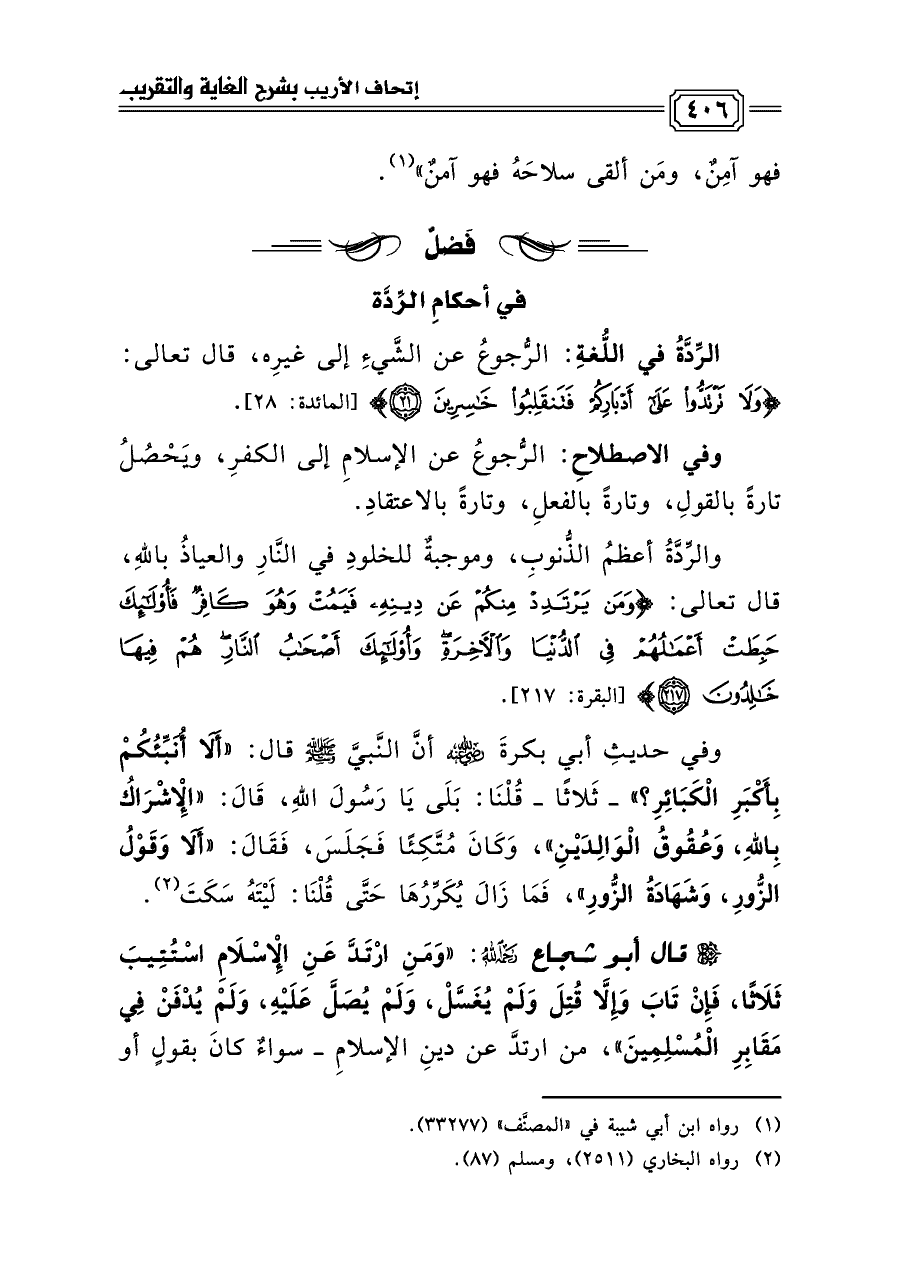 إتحاف الأريب بشرح الغاية والتقريب
٤٠٦
فهو آمِنٌ، ومَن ألقى سلاحَهُ فهو آمنٌ»(١).
فَصْلٌ
في أحكامِ الرِّدَّة
الرِّدَّةُ في اللُّغةِ: الرُّجوعُ عن الشَّيءِ إلى غيرِه، قال تعالى:
﴿وَلَا نَرْتَدُّواْ عَلَىٰٓ أَدْبَارِكُمْ فَتَنقَلِبُواْ خَٰسِرِينَ ٢١﴾ [المائدة: ٢٨].
وفي الاصطلاحِ: الرُّجوعُ عن الإسلامِ إلى الكفرِ، ويَحْصُلُ
تارةً بالقولِ، وتارةً بالفعلِ، وتارةً بالاعتقادِ.
والرِّدَّةُ أعظمُ الذُّنوبِ، وموجبةٌ للخلودِ في النَّارِ والعياذُ باللهِ،
قال تعالى: ﴿وَمَن يَرْتَدِدْ مِنكُمْ عَن دِينِهِۦ فَيَمُتْ وَهُوَ كَافِرٌ فَأُوْلَٰٓئِكَ
حَبِطَتْ أَعْمَٰلُهُمْ فِى ٱلدُّنْيَا وَٱلْأٓخِرَةِۖ وَأُوْلَٰٓئِكَ أَصْحَٰبُ ٱلنَّارِۖ هُمْ فِيهَا
خَٰلِدُونَ ٢١٧﴾ [البقرة: ٢١٧].
وفي حديثِ أبي بكرةَ رضي الله عنه أنَّ النَّبيَّ ﷺ قال: «أَلَا أُنَبِّئُكُمْ
بِأَكْبَرِ الْكَبَائِرِ؟» ـ ثَلاثًا ـ قُلْنَا: بَلَى يَا رَسُولَ اللهِ، قَالَ: «الْإِشْرَاكُ
بِاللهِ، وَعُقُوقُ الْوَالِدَيْنِ»، وَكَانَ مُتَّكِئًا فَجَلَسَ، فَقَالَ: «أَلَا وَقَوْلُ
الزُّورِ، وَشَهَادَةُ الزُّورِ»، فَمَا زَالَ يُكَرِّرُهَا حَتَّى قُلْنَا: لَيْتَهُ سَكَتَ(٢).
قال أبو شجاع رحمه الله: «وَمَنِ ارْتَدَّ عَنِ الْإِسْلَامِ اسْتُتِيبَ
ثَلَاثًا، فَإِنْ تَابَ وَإِلَّا قُتِلَ وَلَمْ يُغَسَّلْ، وَلَمْ يُصَلَّ عَلَيْهِ، وَلَمْ يُدْفَنْ فِي
مَقَابِرِ الْمُسْلِمِينَ»، من ارتدَّ عن دينِ الإسلامِ ـ سواءٌ كانَ بقولٍ أو
(١) رواه ابن أبي شيبة في «المصنَّف» (٣٣٢٧٧).
(٢) رواه البخاري (٢٥١١)، ومسلم (٨٧).